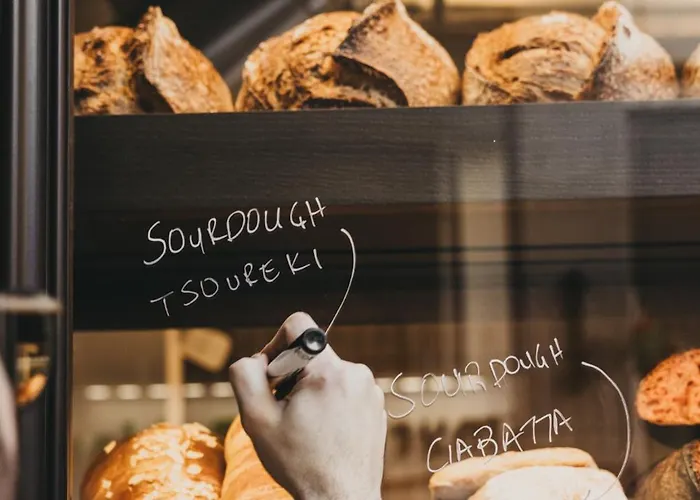 SOURDOUGH
TSOUREKI
SOURDOUGH
CIABATTA